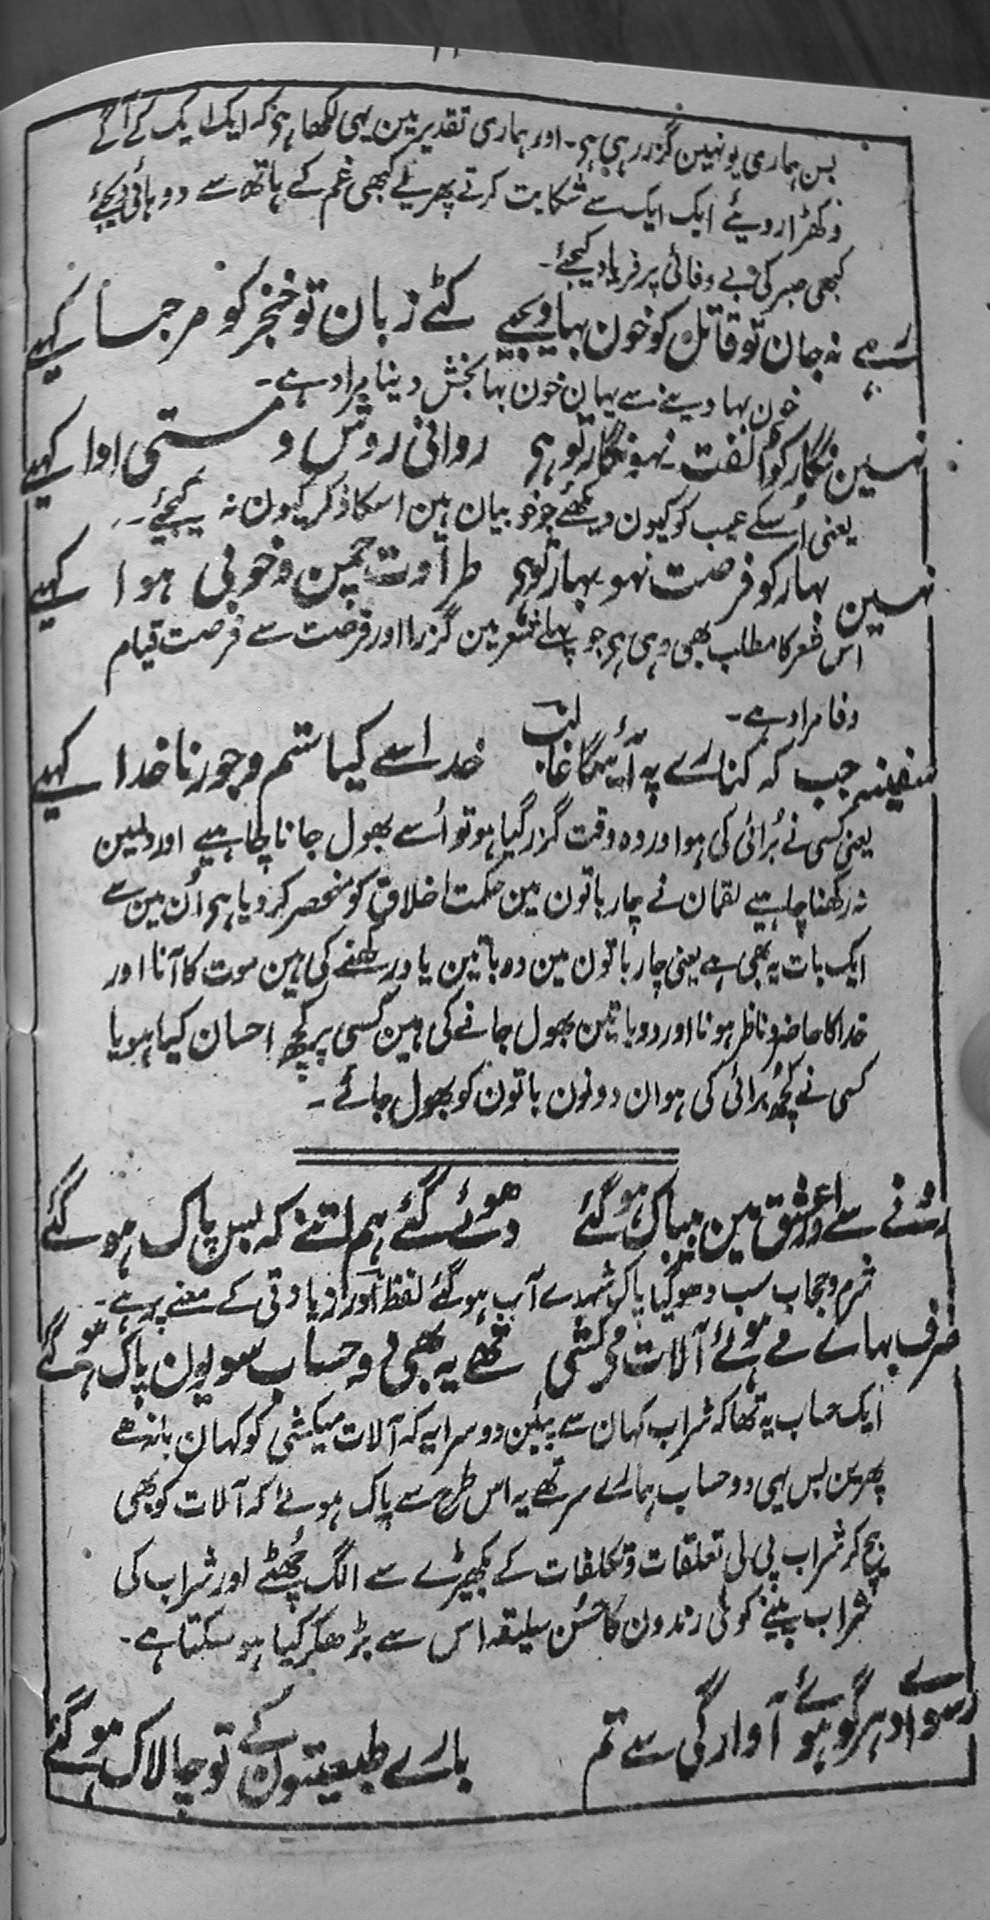 بس ہماری یونہین گزر رہی ہی۔ اور ہماری تقدیر مین یہی لکھا ہی کہ ایک ایک کے آگے
دکھڑا رویئے ایک ایک سے شکایت کرتے پھریے کبھی غم کے ہاتھ سے دوہائی دیجئے
کبھی صبر کی بے وفائی پر فریاد کیجئے۔
رہے نہ جان تو قاتل کو خون بہا دیجیے کٹے زبان تو خنجر کو مرحبا کہیے
خون بہا دینے سے یہان خون بہا بخش دینا مراد ہے۔
نہین نگار کو الفت نہو نگار تو ہی روانی روش و مستی ادا کہیے
یعنی اُسکے عیب کو کیون دیکھئے جو خوبیان ہین اسکا ذکر کیون نہ کیجئے۔
نہین بہار کو فرصت نہو بہار تو ہی طراوت چمن و خوبی ہوا کہیے
اس شعر کا مطلب بھی وہی ہی جو پہلے شعر مین گزرا اور فرصت سے فرصت قیام
وفا مراد ہے۔
سفینہ جب کہ کنارے پہ آ لگا غالب خدا سے کیا ستم و جور ناخدا کہیے
یعنی کسی نے بُرائی کی ہو اور وہ وقت گزر گیا ہو تو اُسے بھول جانا چاہیے اور دلمین
نہ رکھنا چاہیے لقمان نے چار باتون مین حکمت اخلاق کو منحصر کر دیا ہی اُن مین سے
ایک بات یہ بھی ہے یعنی چار باتون مین دو باتین یاد رکھنے کی ہین موت کا آنا اور
خدا کا حاضر و ناظر ہونا اور دو باتین بھول جانے کی ہین کسی پر کچھ احسان کیا ہو یا
کسی نے کچھ بُرائی کی ہو ان دونون باتون کو بھول جائے۔
رونے سے اور عشق مین بیباک ہو گئے دھوئے گئے ہم اتنے کہ بس پاک ہو گئے
شرم و حجاب سب دھو گیا پاک شہدے آپ ہو گئے لفظ اور زیادتی کے معنے پر ہے۔
صرف بہائے مے ہوئے آلات میکشی تھے یہ ہی دو حساب سو یون پاک ہو گئے
ایک حساب یہ تھا کہ شراب کہان سے پیئین دوسرا یہ کہ آلات میکشی کو کہان باندھے
پھرین بس یہی دو حساب ہمارے سر تھے یہ اس طرح سے پاک ہوئے کہ آلات کو بھی
بیچ کر شراب پی لی تعلقات و تکلفات کے بکھیڑے سے الگ چُھٹے اور شراب کی
شراب پینے کو ملی رندون کا حُسن سلیقہ اس سے بڑھکر کیا ہو سکتا ہے۔
رسوائے دہر گو ہوئے آوارگی سے تم بارے طبیعتون کے تو چالاک ہو گئے